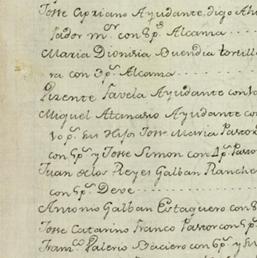 Jose Cipriano Ayudante, digo Ahi
jador m.r con 8p.s Alcanna
Maria Dionisia Buendia tortille
ra con 3p.s Alcanna
Vizente Favela Ayudante con
Miquel Atanasio Ayudante con
vo p.s su Hijo Jose Maria Pastor
con 5p.s y Jose Simon con 4p.s Pastor
Juan de los Reyes Galban Ranche
con 5p.s Deve
Antonio Galban Estaquero con 8
Jose Catarino Franco Pastor con 5p.s
Fran.co Valerio Baciero con 6p.s y su